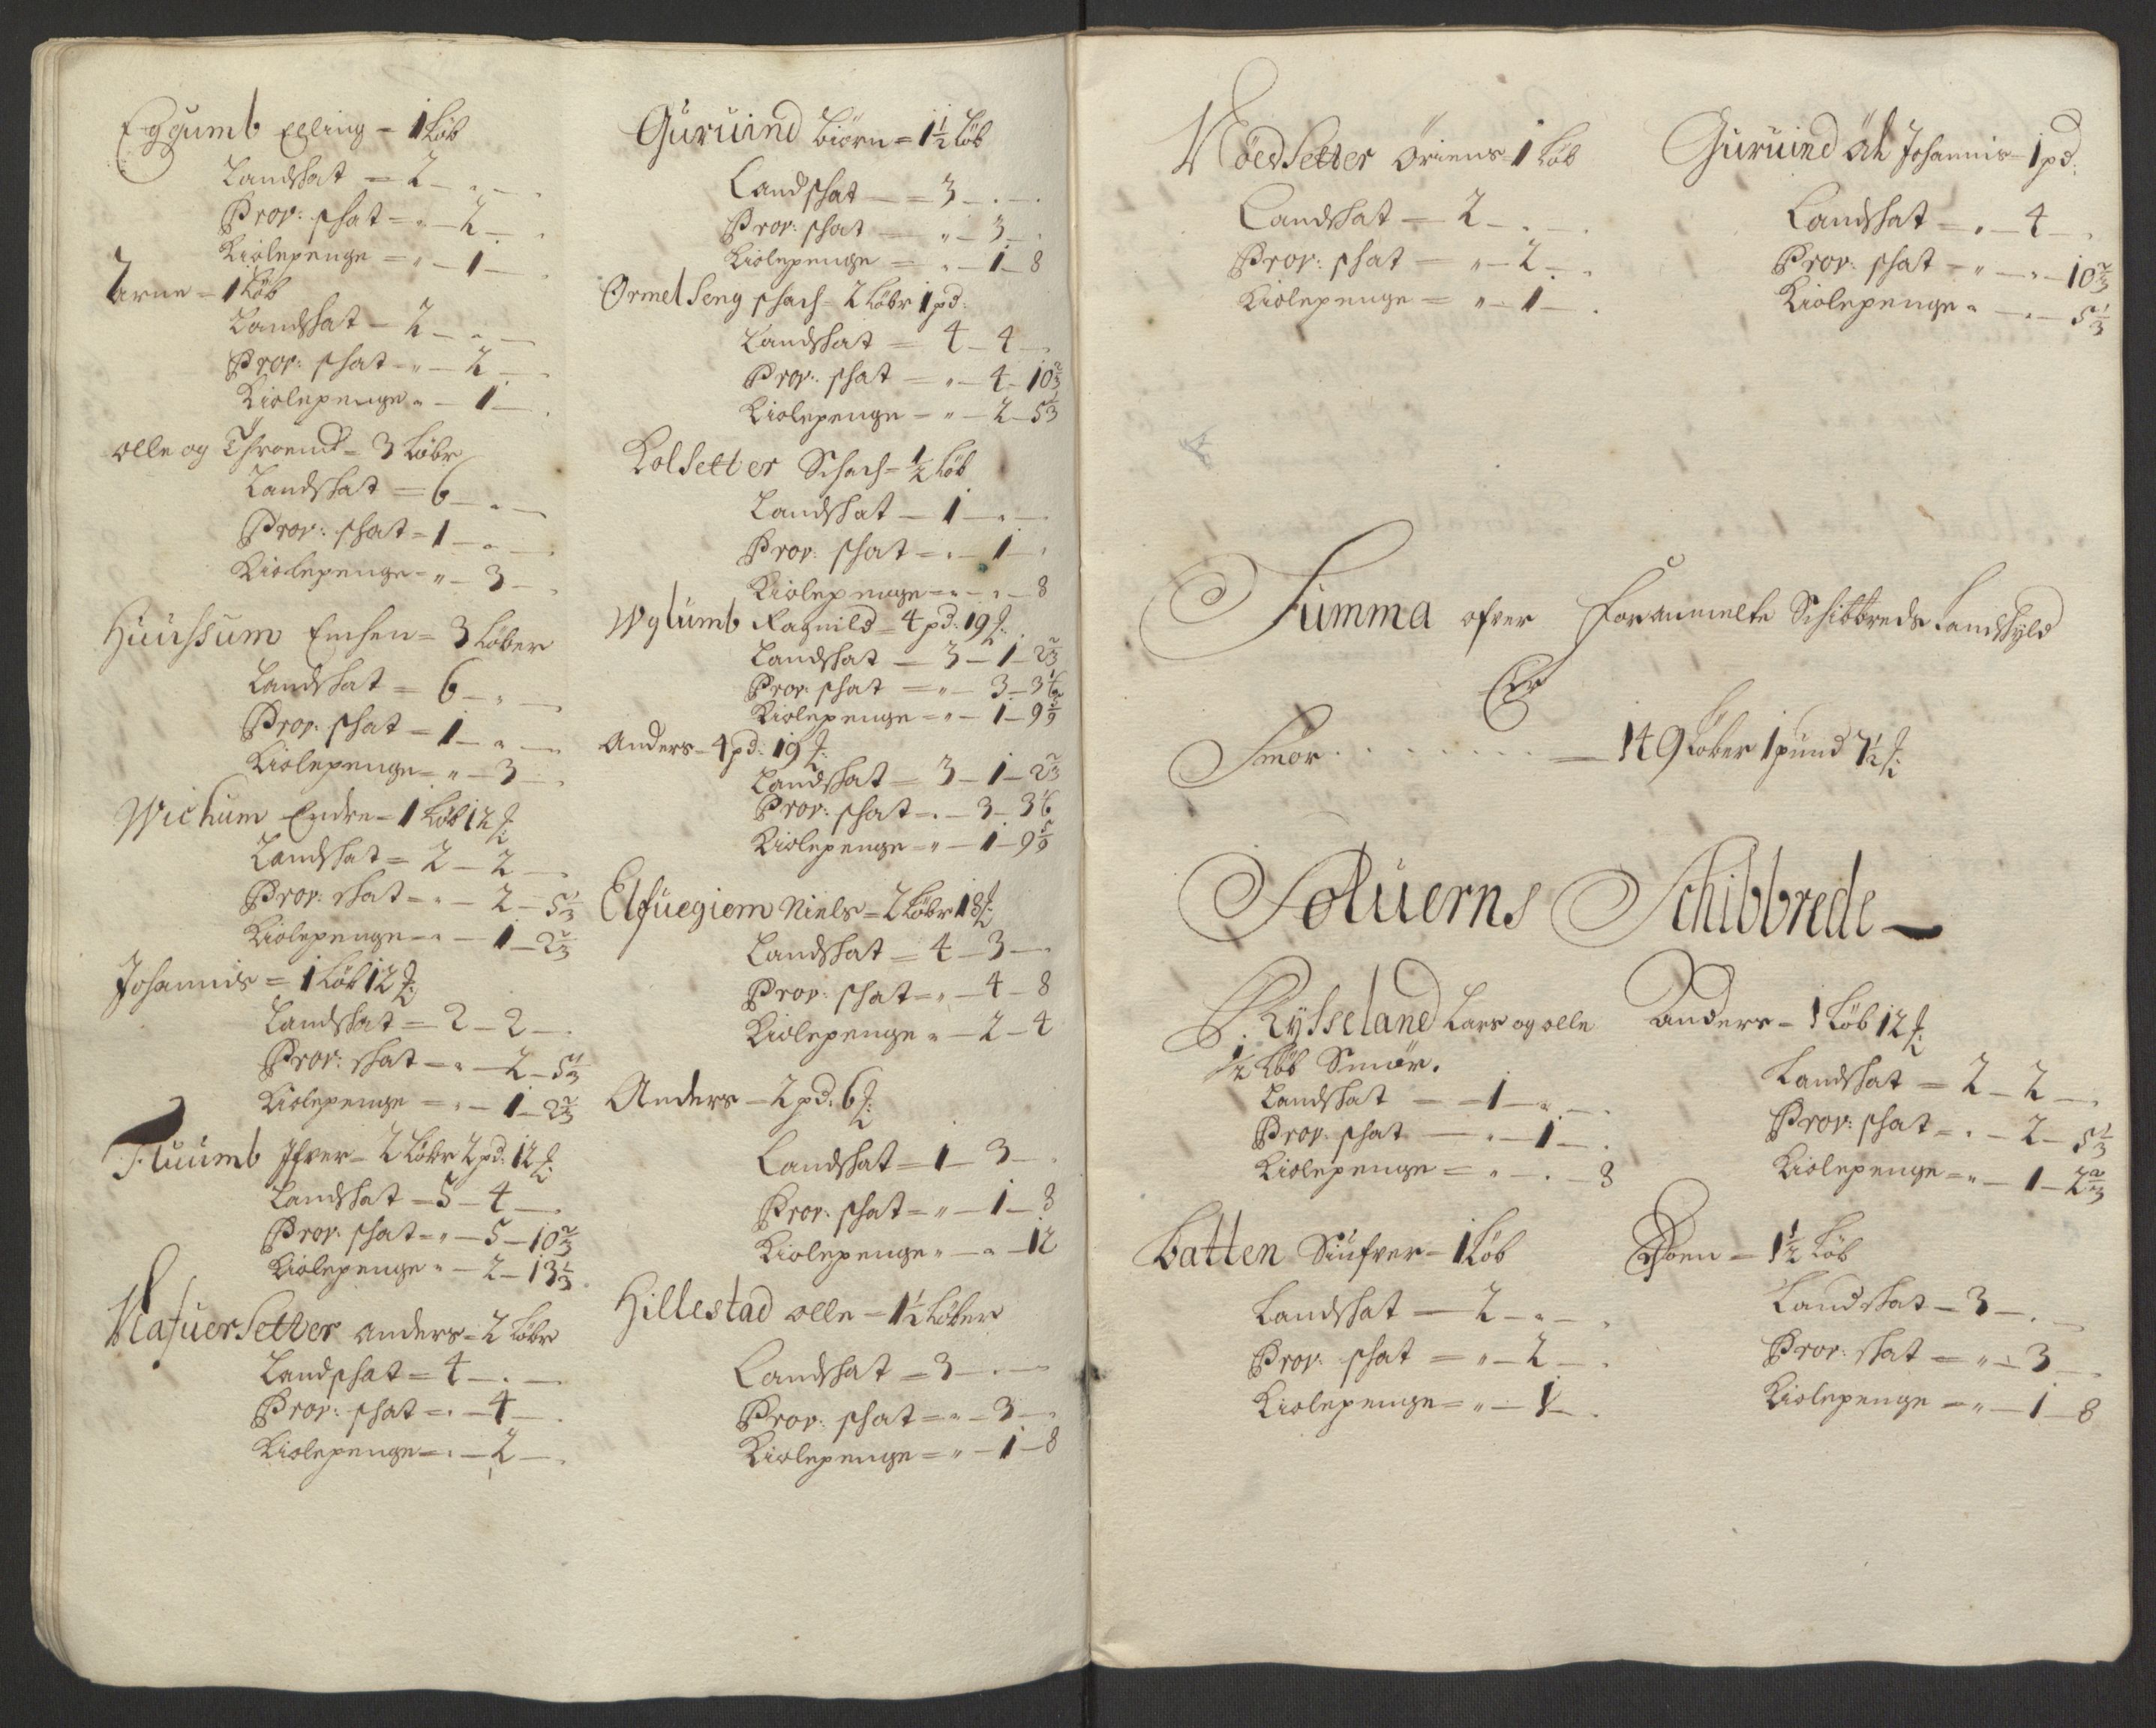 Eggumb Elling = 1 Løb
Landskat = 2 - „ -
Prov: skat = „ - 2 -
Kiolepenge = „ - 1 -
Arne = 1 Løb
Landskat - 2 - „ -
Prov: skat - „ - 2 -
Kiolepenge „ - 1 -
olle og Throend = 3 Løbr
Landskat = 6 - „ -
Prov: skat = 1 - „ -
Kiolepenge = „ - 3 -
Huussum Emken = 3 Løber
Landskat = 6 - „ -
Prov: skat = 1 - „ -
Kiolepenge = „ - 3 -
Wichum Endre = 1 Løb 12 ℔
Landskat = 2 - 2 -
Prov: skat = „ - 2 - 5 1/3
Kiolepenge = „ - 1 - 2 2/3
Johannis = 1 Løb 12 ℔
Landskat = 2 - 2 -
Prov: skat - „ - 2 - 5 1/3
Kiolepenge = „ - 1 - 2 2/3
Fluumb Ifver - 2 Løbr 2 pd: 12 ℔
Landskat = 5 - 4 -
Prov: skat = „ - 5 - 10 2/3
Kiolepenge „ - 2 - 13 1/3
Nafuersetter anders = 2 Løbr
Landskat = 4 - „ -
Prov: skat = „ - 4 -
Kiolepenge = „ - 2 -
Guruind Biørn = 1 1/2 Løb
Landskat = 3 - „ -
Prov: skat - „ - 3 -
Kiolepenge = „ - 1 - 8
Ormetseng schach = 2 Løbr 1 pd:
Landskat = 4 - 4 -
Prov: skat - „ - 4 - 10 2/3
Kiolepenge - „ - 2 - 5 1/3
Kolsetter Schach = 1/2 Løb
Landskat - 1 - „ -
Prov: skat = „ - 1 -
Kiolepenge = „ - „ - 8
Wylumb Ragnild = 4 pd: 19 ℔
Landskat = 3 - 1 - 2 2/3
Prov: skat = „ - 3 - 3 1/6
Kiolepenge = „ - 1 - 9 5/9
Anders - 4 pd: 19 ℔
Landskat = 3 - 1 - 2 2/3
Prov: skat - „ - 3 - 3 1/6
Kiolepenge = „ - 1 - 9 5/9
Elfuegiem Niels = 2 Løbr 18 ℔
Landskat = 4 - 3 -
Prov: skat = „ - 4 - 8
Kiolepenge „ - 2 - 4
Anders - 2 pd: 6 ℔
Landskat = 1 - 3 -
Prov: skat = „ - 1 - 8
Kiolepenge „ - „ - 12
Hillestad olle = 1 1/2 Løber
Landskat = 3 - „ -
Prov: skat = „ - 3 -
Kiolepenge = „ - 1 - 8
Nöedsetter Öriens = 1 Løb
Landskat = 2 - „ -
Prov: skat - „ - 2 -
Kiolepenge = „ - 1 -
Guruind Johannis - 1 pd:
Landskat = „ - 4 -
Prov: skat - „ - „ - 10 2/3
Kiolepenge „ - „ - 5 1/3
Summa ofver foranmelte Schibbreds Landskyld
Er
Smør . . . . . . . . - 149 Løber 1 pund 7 1/2 ℔
Soluerns Schibbrede -
Rysseland Lars og olle
1/2 Løb Smør.
Landskat - 1 - „ -
Prov: skat - „ - 1 -
Kiolepenge = „ - „ - 8
Batten Siufver = 1 Løb
Landskat - 2 - „ -
Prov: skat = „ - 2 -
Kiolepenge = „ - 1 -
Anders - 1 Løb 12 ℔
Landskat = 2 - 2 -
Prov: skat = „ - 2 - 5 1/3
Kiolepenge = „ - 1 - 2 2/3
- 1 1/2 Løb
Landskat - 3 - „ -
Prov: skat = „ - 3 -
Kiolepenge = „ - 1 - 8